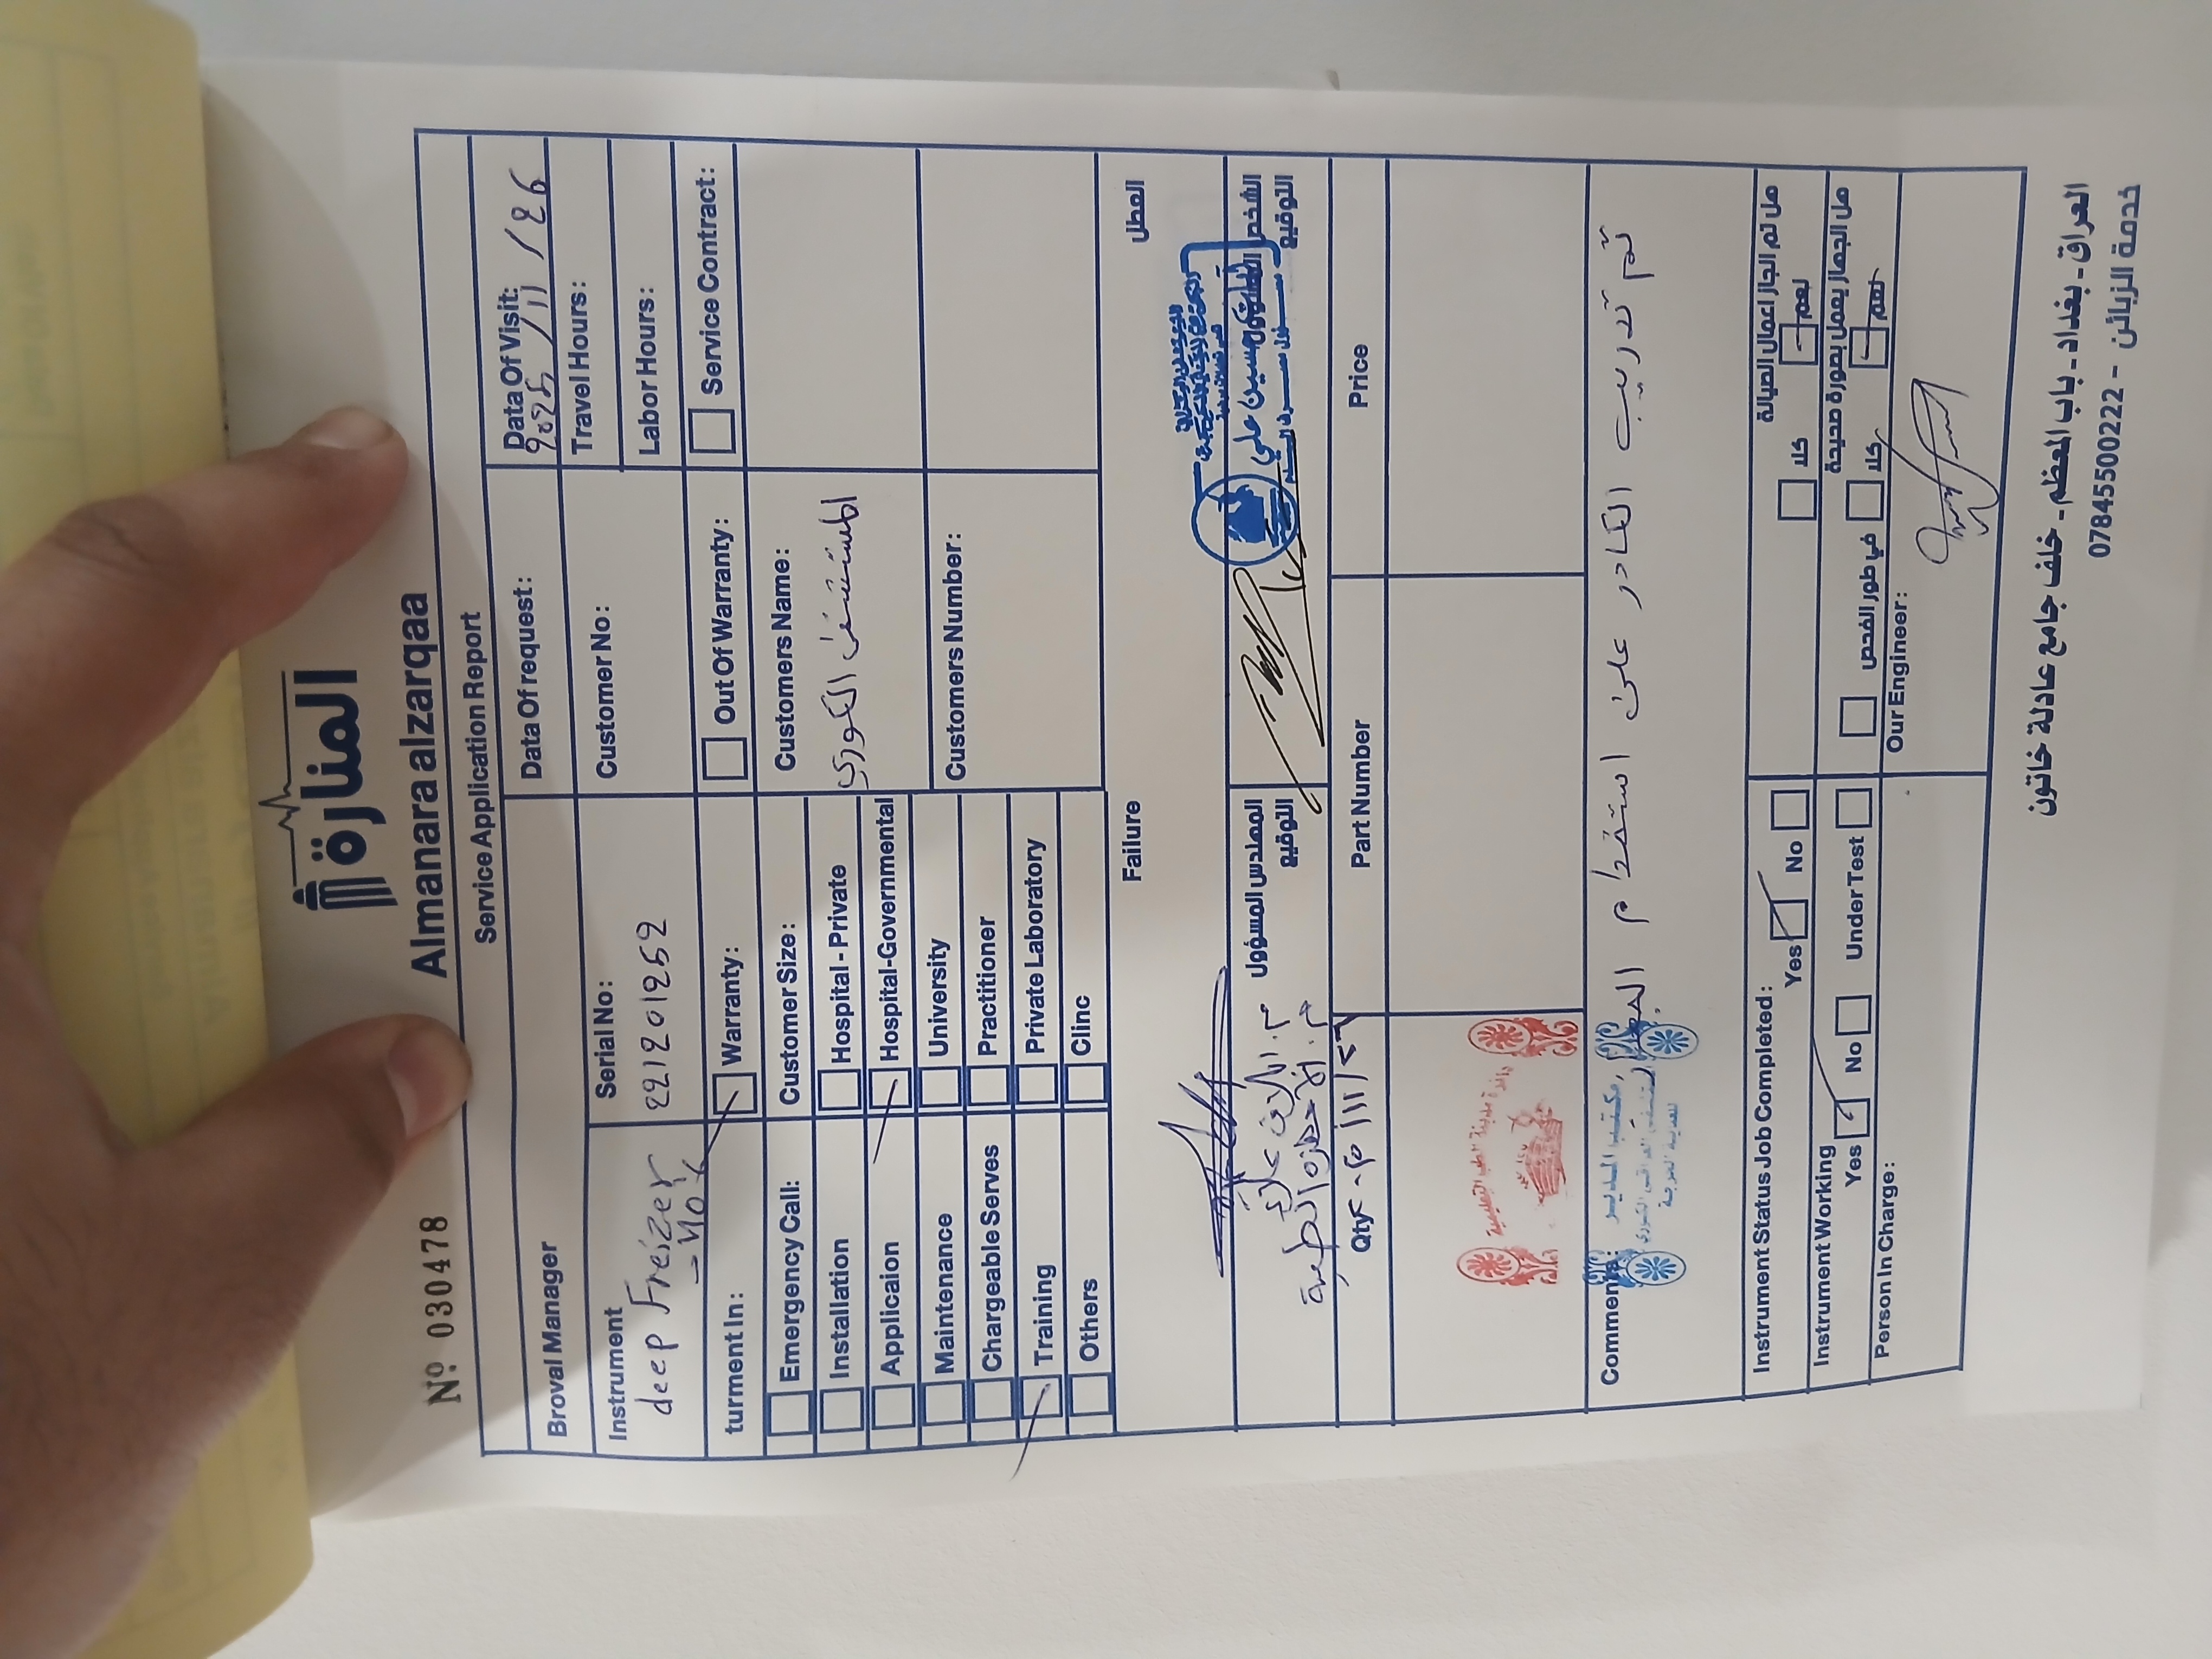 Nº 030478
المنارة
Almanara alzarqaa
Service Application Report
Broval Manager
Data Of request:
Data Of Visit:
2025 / 11 / 26
Travel Hours:
Instrument
deep Freizer
Serial No:
221201259
Customer No:
Labor Hours:
turment In:
Warranty:
Out Of Warranty:
Service Contract:
Emergency Call:
Customer Size:
Customers Name:
Installation
Hospital - Private
المستشفى الكوري
Applicaion
Hospital-Governmental
Maintenance
University
Customers Number:
Chargeable Serves
Practitioner
Training
Private Laboratory
Others
Clinc
Failure
العطل
المهندس المسؤول
التوقيع
الشخص
التوقيع
حسين علي
Qty
Part Number
Price
دائرة مدينة الطب التعليمية
Comments:
تم تدريب الكادر على استخدام
مكتب المدير
Instrument Status Job Completed:
Yes
No
هل تم انجاز اعمال الصيانة
كلا
نعم
Instrument Working
Yes
No
Under Test
هل الجهاز يعمل بصورة صحيحة
في طور الفحص
كلا
نعم
Person In Charge:
Our Engineer:
العراق - بغداد - باب المعظم - خلف جامع عادلة خاتون
خدمة الزبائن - 07845500222